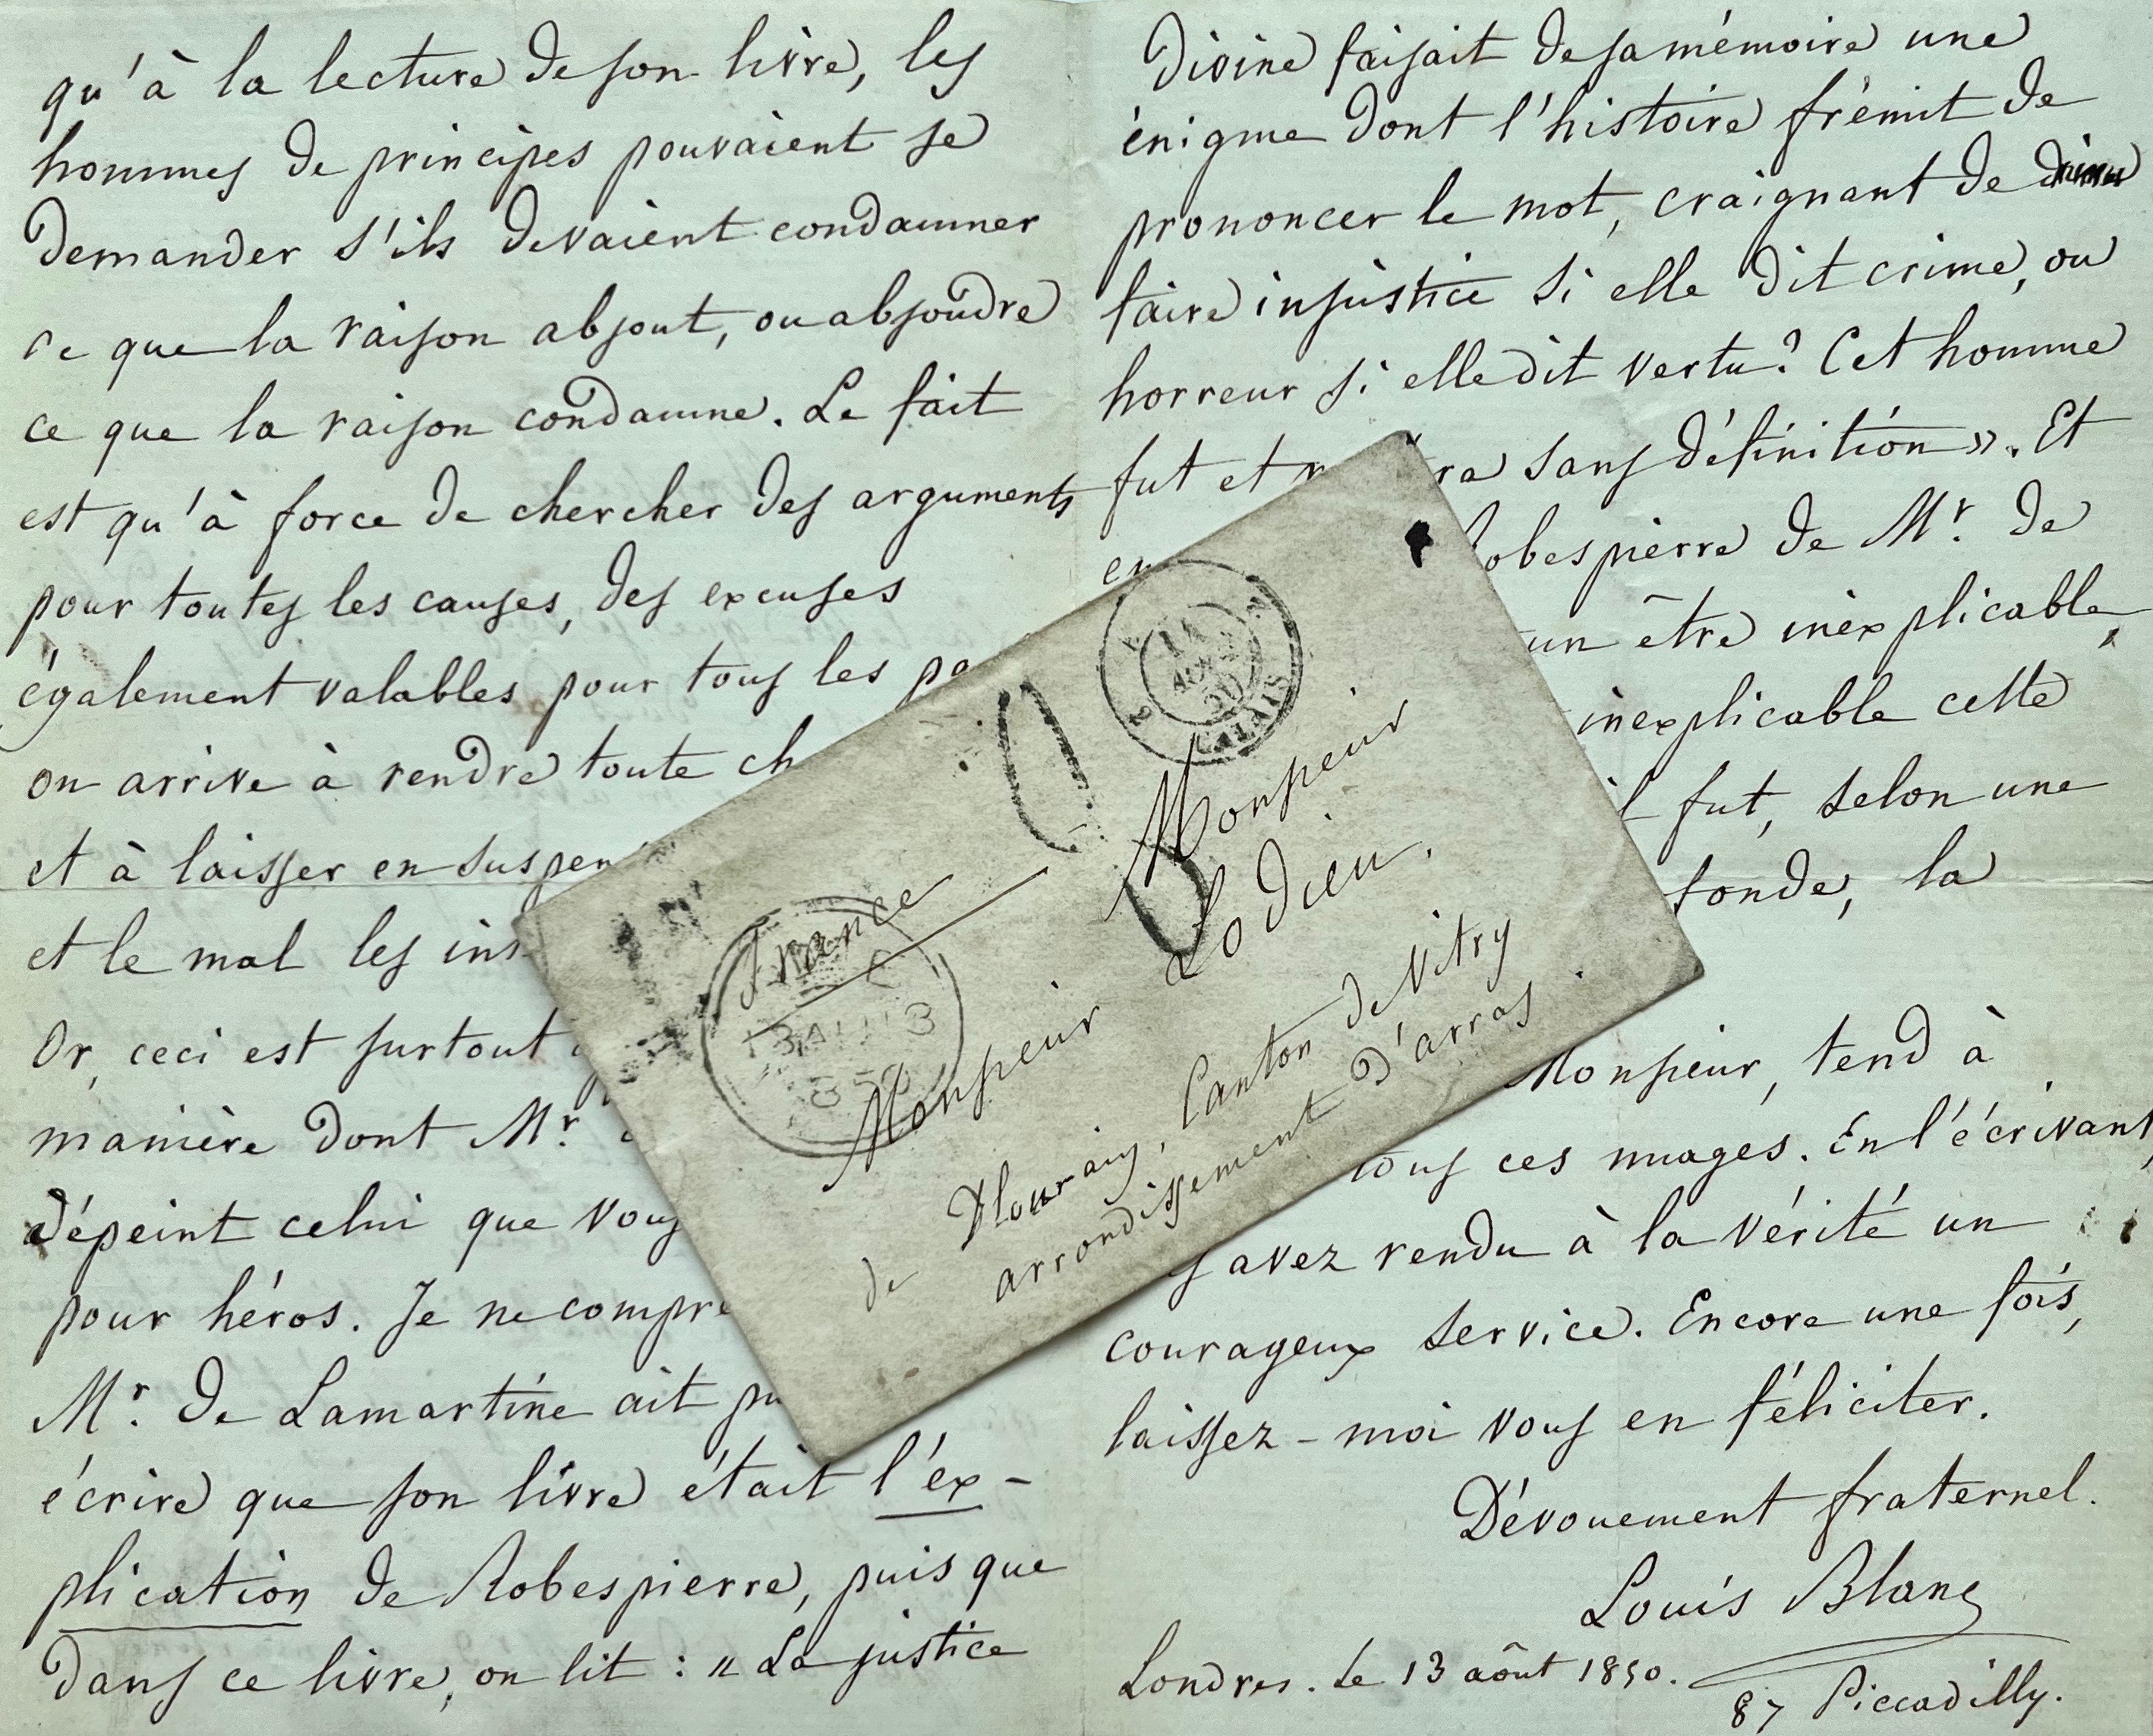 qu'à la lecture de son livre, les
hommes de principes pouvaient se
demander s'ils devaient condamner
ce que la raison absout, ou absoudre
ce que la raison condamne. Le fait
est qu'à force de chercher des arguments
pour toutes les causes, des excuses
également valables pour tous les pa
on arrive à rendre toute ch
et à laisser en suspen
et le mal les ins
Or, ceci est surtout
manière dont Mr.
dépeint celui que vous
pour héros. Je ne compre
Mr. de Lamartine ait pu
écrire que son livre était l'ex-
plication de Robespierre, puisque
dans ce livre, on lit : " La justice
divine faisait de sa mémoire une
énigme dont l'histoire frémit de
prononcer le mot, craignant de
faire injustice si elle dit crime, ou
horreur si elle dit vertu? Cet homme
fut et ra sans définition ». Et
en obespierre de Mr. de
un être inexplicable,
inexplicable cette
fut, selon une
fonde, la
Monsieur, tend à
tous ces nuages. En l'écrivant,
s avez rendu à la vérité un
courageux service. Encore une fois,
laissez-moi vous en féliciter.
Dévouement fraternel.
Louis Blanc
Londres. Le 13 août 1850.
87 Piccadilly.
CALAIS
France
Monsieur
Monsieur
Lodieu.
de Plouvain, Canton de Vitry
arrondissement d'arras.